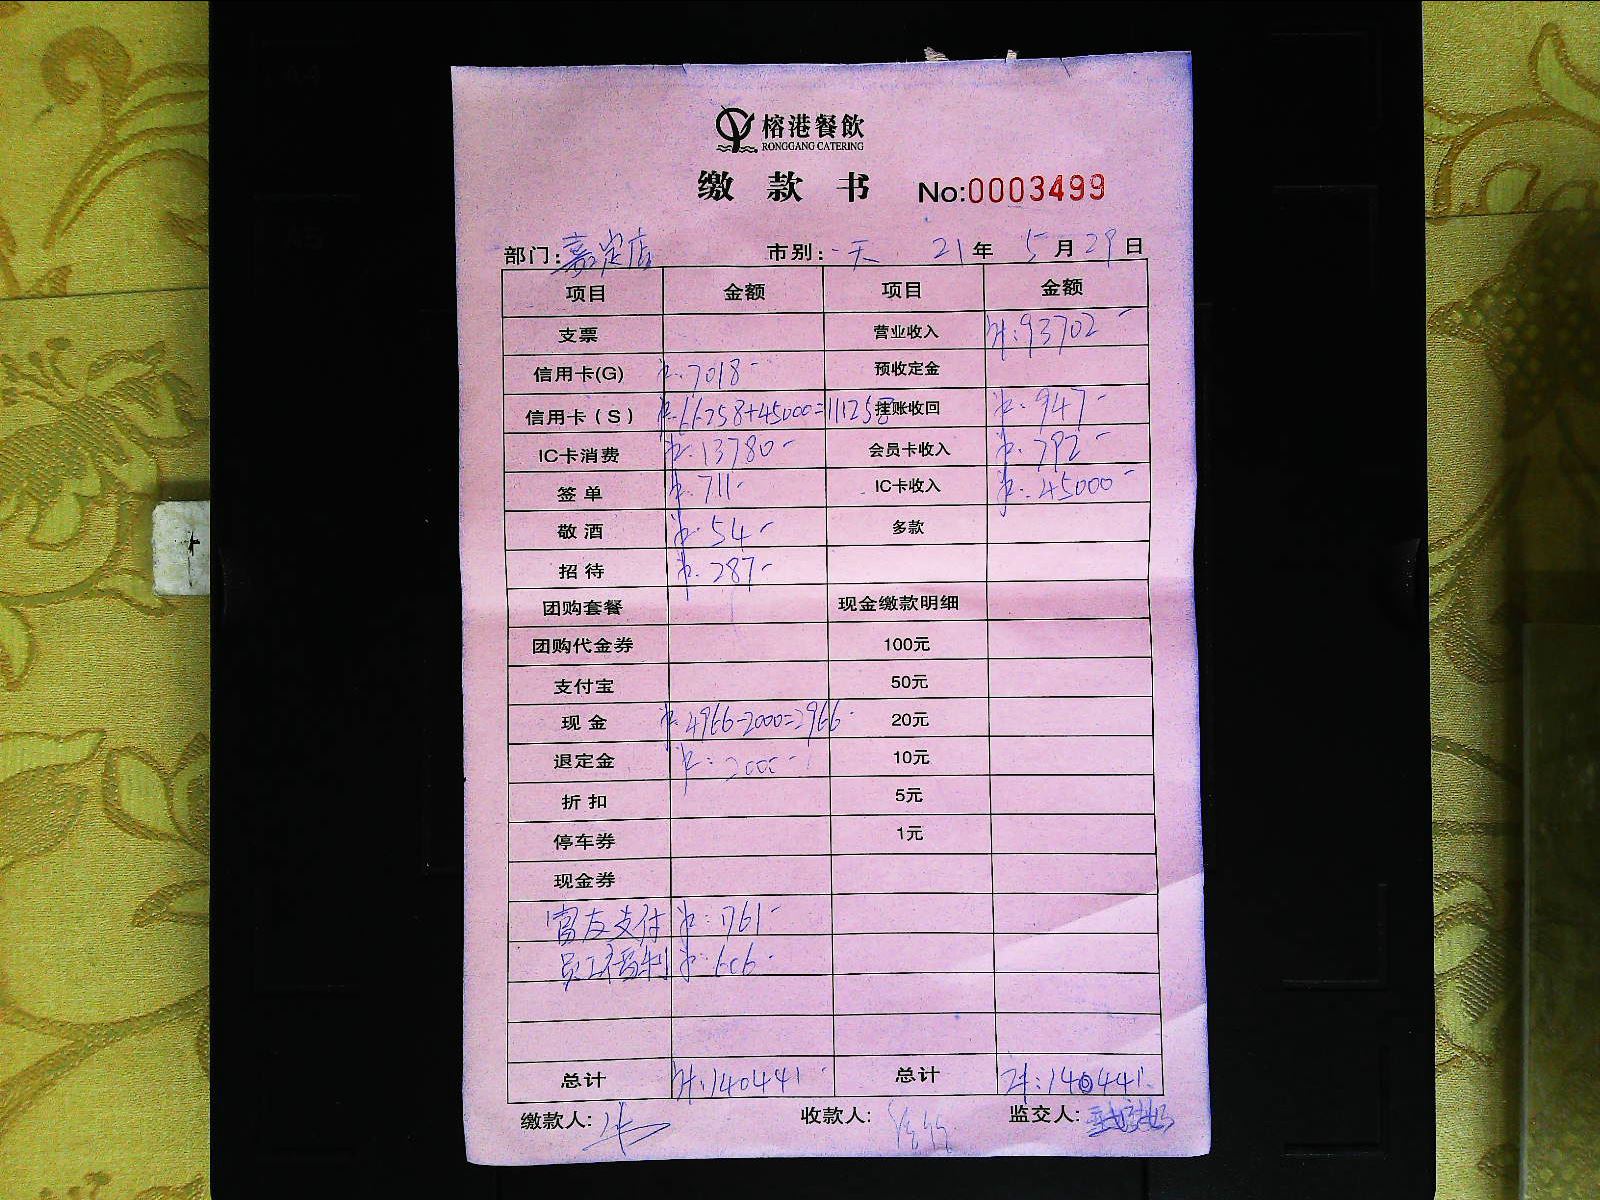 榕港餐飲
RONGGANG CATERING
缴款书 No:0003499
部门:嘉定店 市别:一天 21年 5月29日
项目 金额 项目 金额
支票 营业收入 计:93702-
信用卡(G) 卡:7018- 预收定金
信用卡(S) 66258+45000=111258 挂账收回 947-
IC卡消费 13780- 会员卡收入 792-
签单 711- IC卡收入 45000-
敬酒 54- 多款
招待 287-
团购套餐 现金缴款明细
团购代金券 100元
支付宝 50元
现金 4966-2000=2966- 20元
退定金 2000- 10元
折扣 5元
停车券 1元
现金券
富友支付 1761-
员工福利 606-
总计 计:140441- 总计 计:140441-
缴款人: 收款人: 监交人: